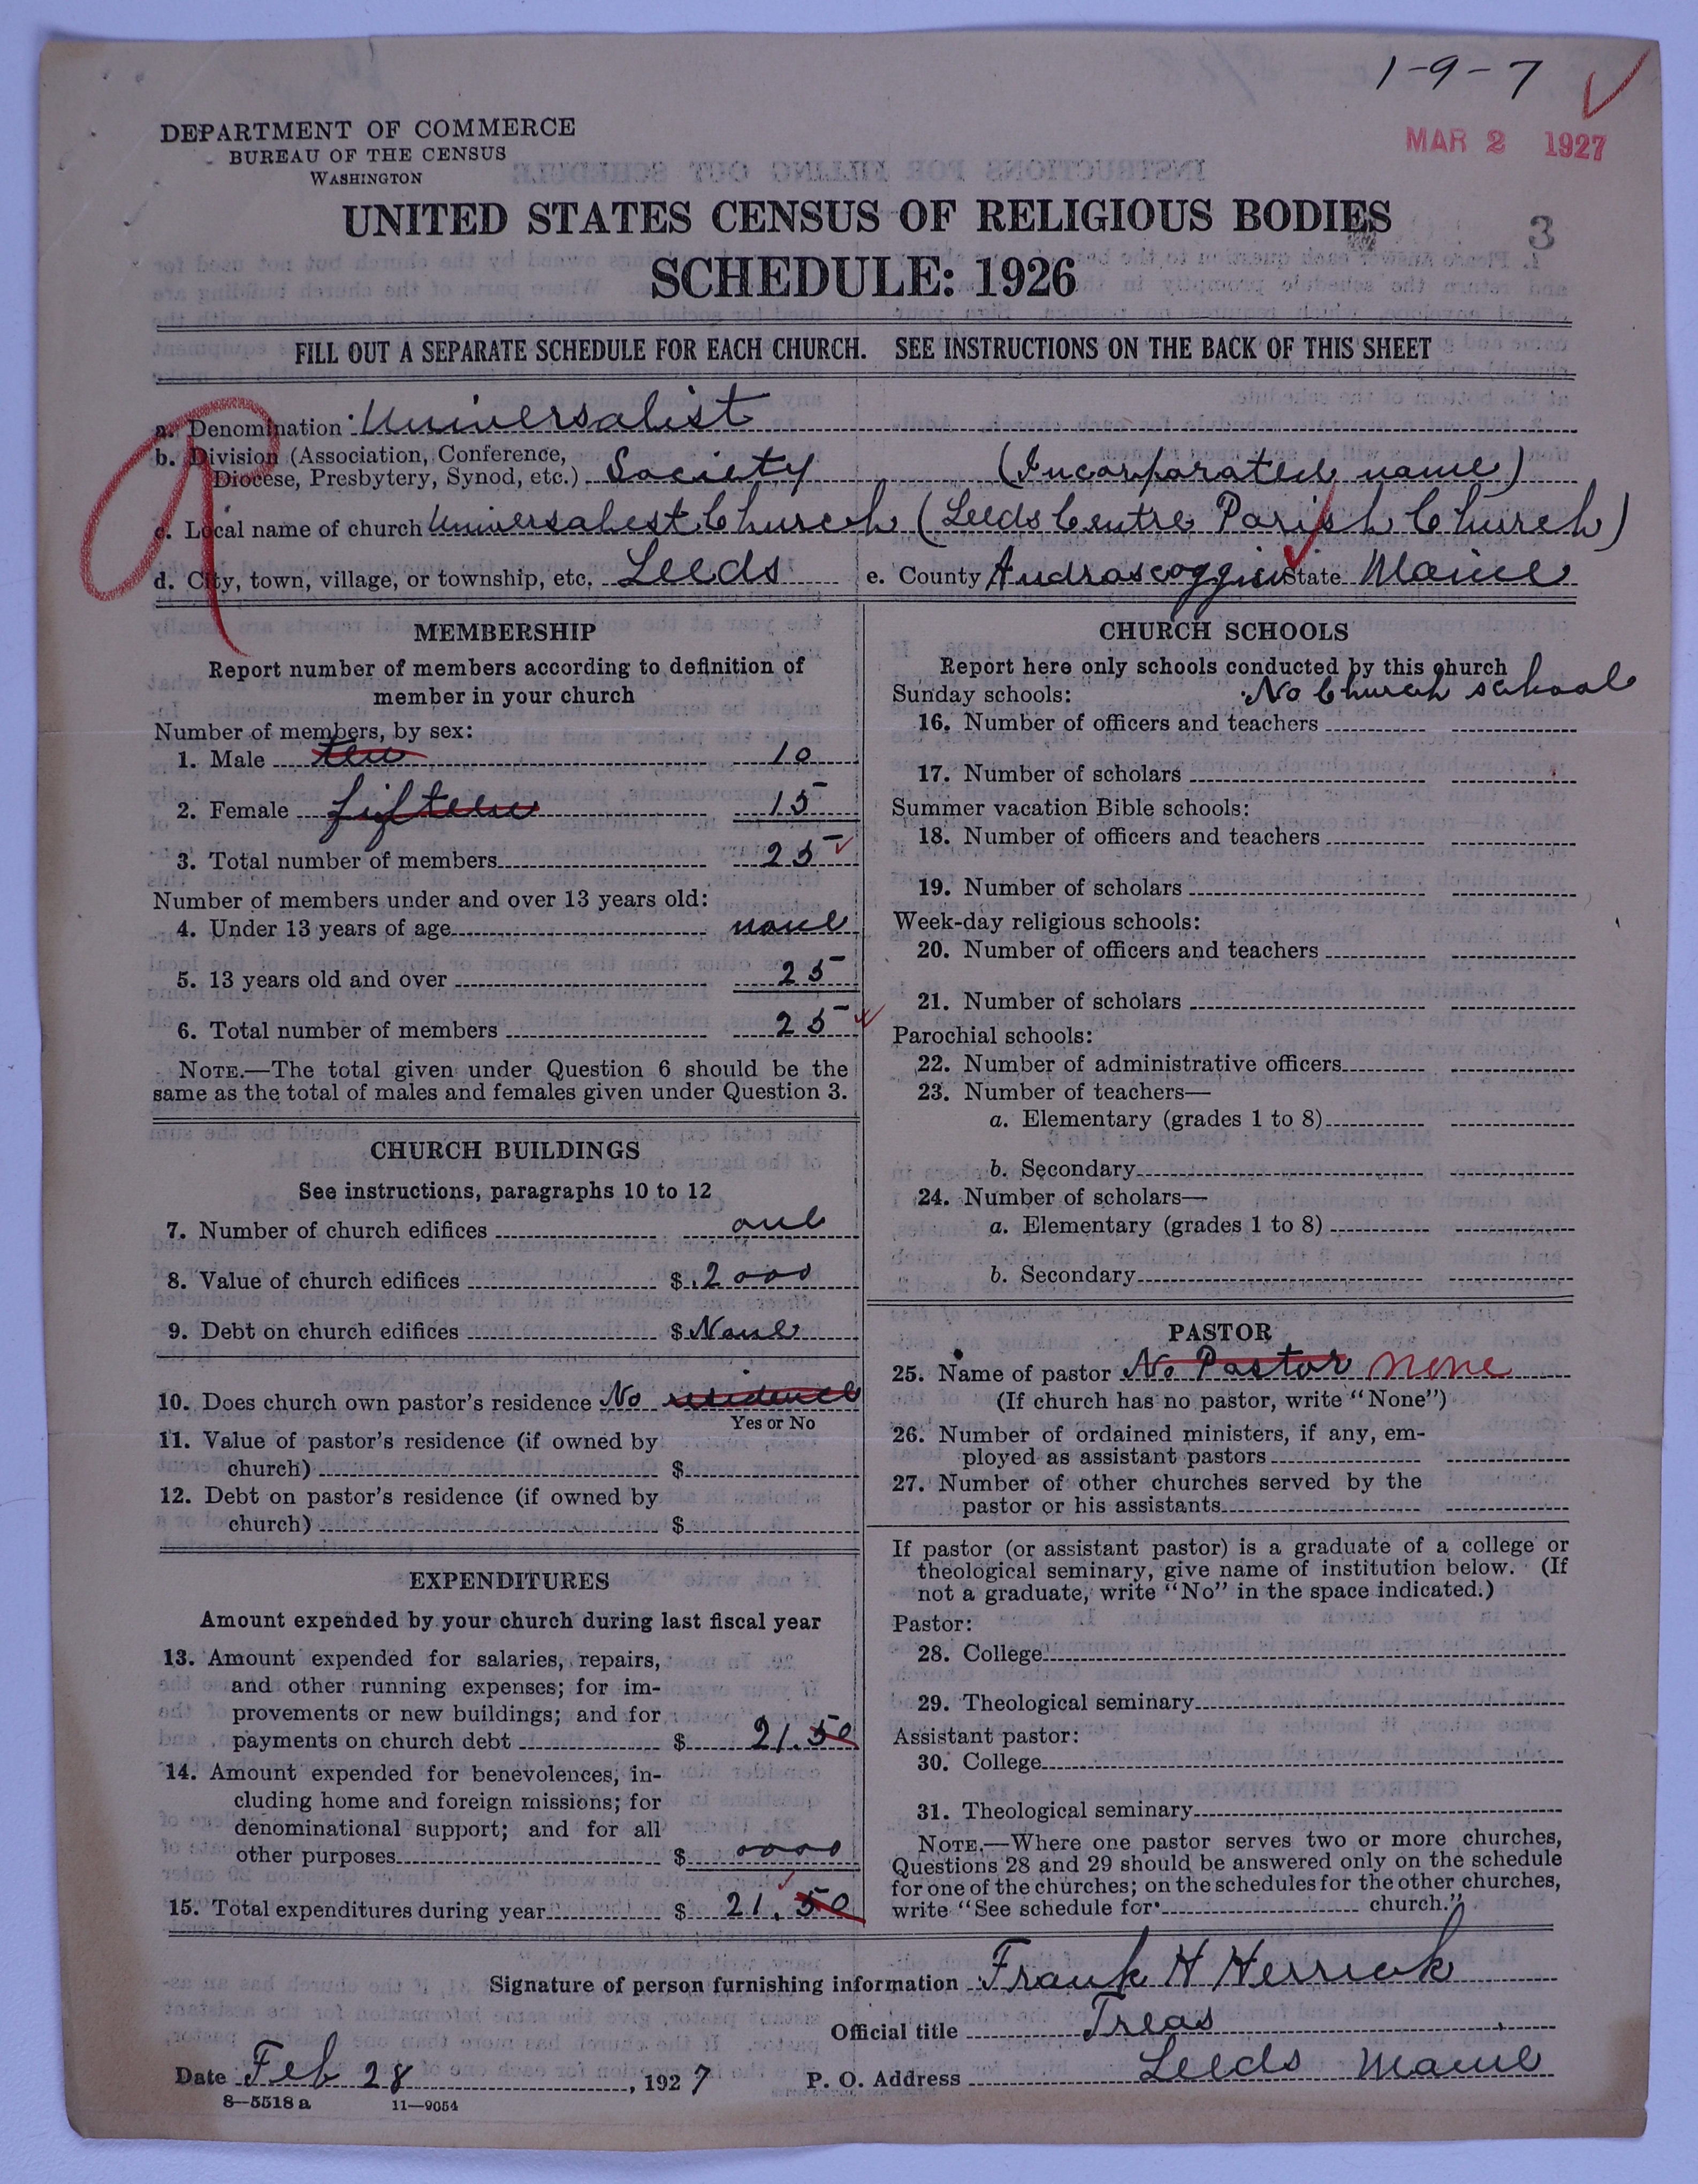 1-9-7
DEPARTMENT OF COMMERCE
BUREAU OF THE CENSUS
WASHINGTON
MAR 2 1927
UNITED STATES CENSUS OF RELIGIOUS BODIES
3
SCHEDULE: 1926
FILL OUT A SEPARATE SCHEDULE FOR EACH CHURCH. SEE INSTRUCTIONS ON THE BACK OF THIS SHEET
a. Denomination Universalist
b. Division (Association, Conference,
Diocese, Presbytery, Synod, etc.) Society (Incorporated name)
c. Local name of church Universalest Church (Leeds Centre Parish Church)
d. City, town, village, or township, etc. Leeds e. County Androscoggin State Maine
MEMBERSHIP
Report number of members according to definition of
member in your church
Number of members, by sex:
1. Male ten 10
2. Female fifteen 15
3. Total number of members 25
Number of members under and over 13 years old:
4. Under 13 years of age none
5. 13 years old and over 25
6. Total number of members 25
NOTE.—The total given under Question 6 should be the
same as the total of males and females given under Question 3.
CHURCH BUILDINGS
See instructions, paragraphs 10 to 12
7. Number of church edifices one
8. Value of church edifices $ 2000
9. Debt on church edifices $ None
10. Does church own pastor's residence No residence
Yes or No
11. Value of pastor's residence (if owned by
church) $
12. Debt on pastor's residence (if owned by
church) $
EXPENDITURES
Amount expended by your church during last fiscal year
13. Amount expended for salaries, repairs,
and other running expenses; for im-
provements or new buildings; and for
payments on church debt $ 21.50
14. Amount expended for benevolences, in-
cluding home and foreign missions; for
denominational support; and for all
other purposes $ 0000
15. Total expenditures during year $ 21.50
CHURCH SCHOOLS
Report here only schools conducted by this church
Sunday schools: No Church school
16. Number of officers and teachers
17. Number of scholars
Summer vacation Bible schools:
18. Number of officers and teachers
19. Number of scholars
Week-day religious schools:
20. Number of officers and teachers
21. Number of scholars
Parochial schools:
22. Number of administrative officers
23. Number of teachers—
a. Elementary (grades 1 to 8)
b. Secondary
24. Number of scholars—
a. Elementary (grades 1 to 8)
b. Secondary
PASTOR
25. Name of pastor No Pastor none
(If church has no pastor, write "None")
26. Number of ordained ministers, if any, em-
ployed as assistant pastors
27. Number of other churches served by the
pastor or his assistants
If pastor (or assistant pastor) is a graduate of a college or
theological seminary, give name of institution below. (If
not a graduate, write "No" in the space indicated.)
Pastor:
28. College
29. Theological seminary
Assistant pastor:
30. College
31. Theological seminary
NOTE.—Where one pastor serves two or more churches,
Questions 28 and 29 should be answered only on the schedule
for one of the churches; on the schedules for the other churches,
write "See schedule for church."
Signature of person furnishing information Frank H Herrick
Official title Treas
Date Feb 28, 1927 P. O. Address Leeds Maine
8—5518 a 11—9054